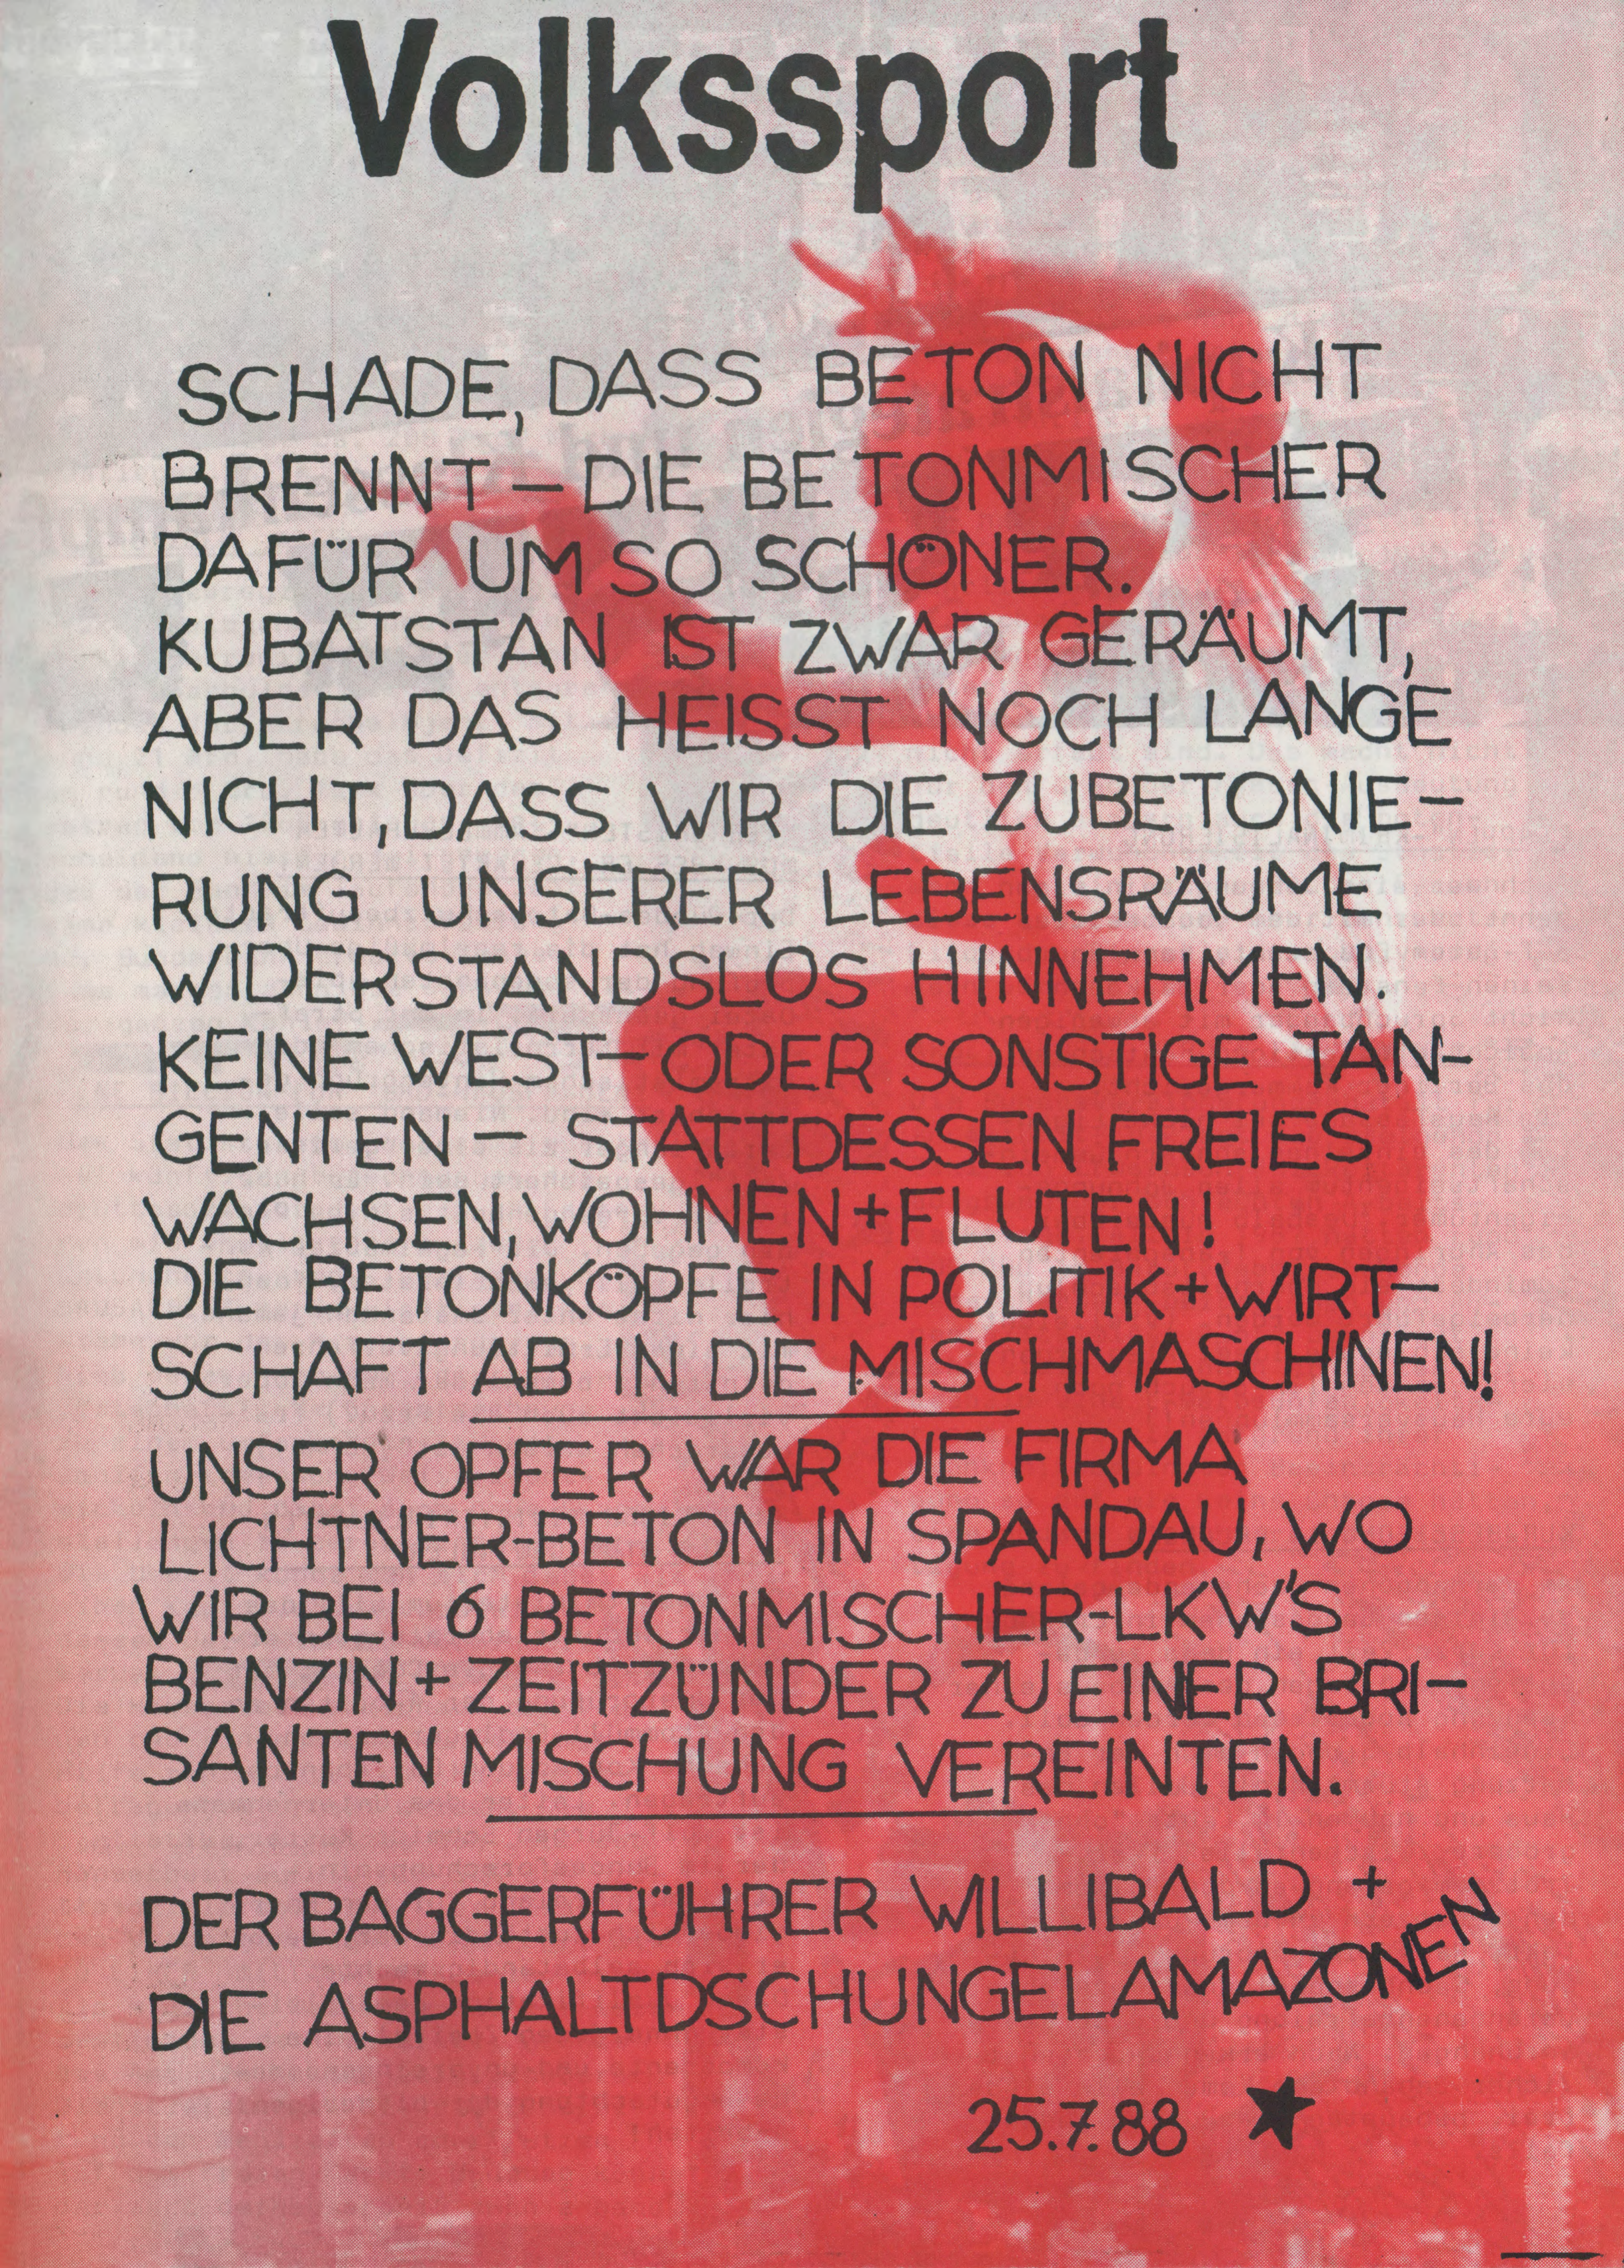 Volkssport
SCHADE, DASS BETON NICHT
BRENNT – DIE BETONMISCHER
DAFÜR UM SO SCHÖNER.
KUBATSTAN IST ZWAR GERÄUMT,
ABER DAS HEISST NOCH LANGE
NICHT, DASS WIR DIE ZUBETONIE-
RUNG UNSERER LEBENSRÄUME
WIDERSTANDSLOS HINNEHMEN.
KEINE WEST- ODER SONSTIGE TAN-
GENTEN – STATTDESSEN FREIES
WACHSEN, WOHNEN + FLUTEN!
DIE BETONKÖPFE IN POLITIK + WIRT-
SCHAFT AB IN DIE MISCHMASCHINEN!
UNSER OPFER WAR DIE FIRMA
LICHTNER-BETON IN SPANDAU, WO
WIR BEI 6 BETONMISCHER-LKW'S
BENZIN + ZEITZÜNDER ZU EINER BRI-
SANTEN MISCHUNG VEREINTEN.
DER BAGGERFÜHRER WILLIBALD +
DIE ASPHALTDSCHUNGELAMAZONEN
25.7.88 ★